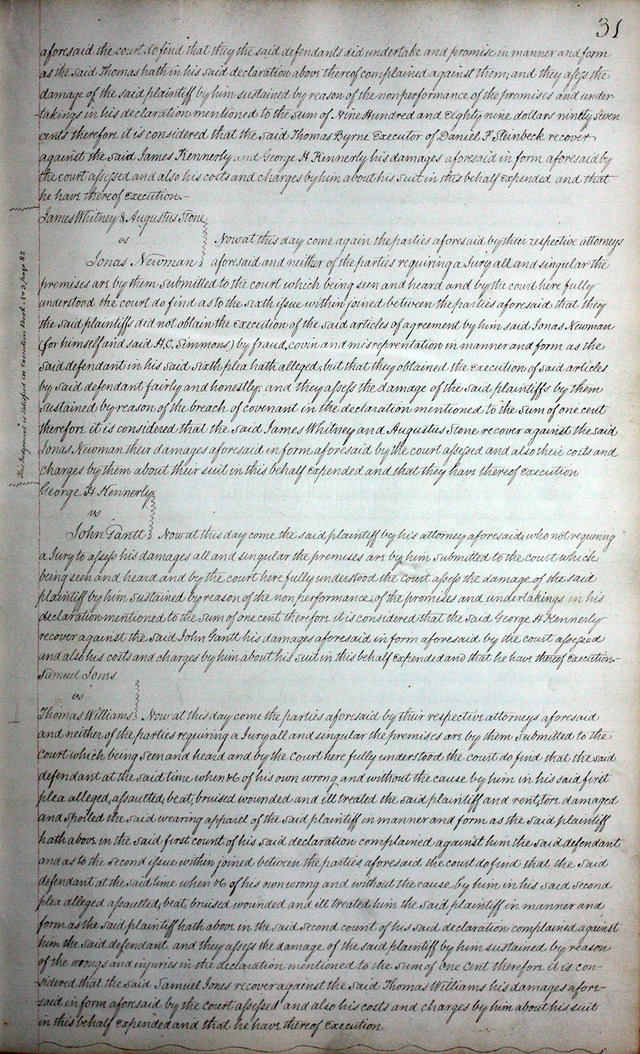 31
aforesaid the court do find that they the said defendants did undertake and promise in manner and form
as the said Thomas hath in his said declaration above thereof complained against them, and they assess the
damage of the said plaintiff by him sustained by reason of the nonperformance of the promises and under-
takings in his declaration mentioned to the Sum of Nine Hundred and Eighty nine dollars ninety seven
cents therefore it is considered that the said Thomas Byrne Executor of Daniel F. Steinbeck recover
against the said James Kennerly and George H Kinnerly his damages aforesaid in form aforesaid by
the court assessed and also his costs and charges by him about his suit in this behalf expended and that
he have thereof execution.
James Whitney & Augustus Stone
vs Now at this day come again the parties aforesaid by their respective attorneys
Jonas Newman aforesaid and neither of the parties requiring a Jury all and singular the
premises are by them submitted to the court which being seen and heard and by the court here fully
understood the court do find as to the sixth issue within joined between the parties aforesaid that they
the said plaintiffs did not obtain the execution of the said articles of agreement by him said Jonas Newman
(for himself and said H.C. Simmons) by fraud, covin and misreprentation in manner and form as the
said defendant in his said sixth plea hath alleged, but that they obtained the execution of said articles
by said defendant fairly and honestly, and they assess the damage of the said plaintiffs by them
sustained by reason of the breach of covenant in the declaration mentioned to the sum of one cent
therefore it is considered that the said James Whitney and Augustus Stone recover against the said
Jonas Newman their damages aforesaid in form aforesaid by the court assessed and also their costs and
charges by them about their suit in this behalf expended and that they have thereof execution
This Judgment is satisfied in Execution Book page 82
George H Kennerly
vs
John Gantt Now at this day come the said plaintiff by his attorney aforesaid, who not requiring
a Jury to assess his damages all and singular the premises are by him submitted to the court which
being seen and heard and by the court here fully understood the court assess the damage of the said
plaintiff by him sustained by reason of the nonperformance, of the promises and undertakings in his
declaration mentioned to the sum of one cent therefore it is considered that the said George H. Kennerly
recover against the said John Gantt his damages aforesaid in form aforesaid by the court assessed
and also his costs and charges by him about his suit in this behalf expended and that he have thereof execution
Samuel Jones
vs
Thomas Williams Now at this day come the parties aforesaid by their respective attorneys aforesaid
and neither of the parties requiring a Jury all and singular the premises are by them submitted to the
court which being seen and heard and by the court here fully understood the court do find that the said
defendant at the said time when &c of his own wrong and without the cause by him in his said first
plea alleged, assaulted, beat, bruised wounded and ill treated the said plaintiff and rent, tore damaged
and spoiled the said wearing apparel of the said plaintiff in manner and form as the said plaintiff
hath above in the said first count of his said declaration complained against him the said defendant
and as to the second issue within joined between the parties aforesaid the court do find that the said
defendant at the said time when &c of his own wrong and without the cause by him in his said second
plea alleged assaulted, beat, bruised wounded and ill treated him the said plaintiff in manner and
form as the said plaintiff hath above in the said second count of his said declaration complained against
him the said defendant. and they assess the damage of the said plaintiff by him sustained by reason
of the wrongs and injuries in the declaration mentioned to the sum of One cent therefore it is con-
sidered that the said Samuel Jones recover against the said Thomas Williams his damages afore-
said in form aforesaid by the court assessed and also his costs and charges by him about his suit
in this behalf expended and that he have thereof execution